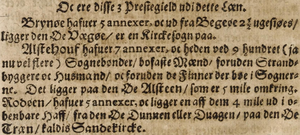 Oc ere disse 3 Prestegield udi dette Læn.
Brynøe hafuer 3 annexer, oc ud fra Begøe 2¼ ugesiøes/
ligger den De Vægsøe/ er en Kirckesogn paa.
Alstehouf hafuer 7 annexer, oc heden ved 9 hundret (ja
nu vel flere) Sognebonder/ bofaste Mænd/ foruden Strand-
byggere oc Husmand/ oc foruden de Finner der boe i Sogner-
ne. Det ligger paa den De Alsteen/ som er 5 mile omkring.
Rodøen/ hafuer 3 annexer, oc ligger en aff dem 4 mile ud i o-
benbare Haff/ fra den De Dunnen eller Duagen/ paa den De
Træn/ kaldis Sandekircke.